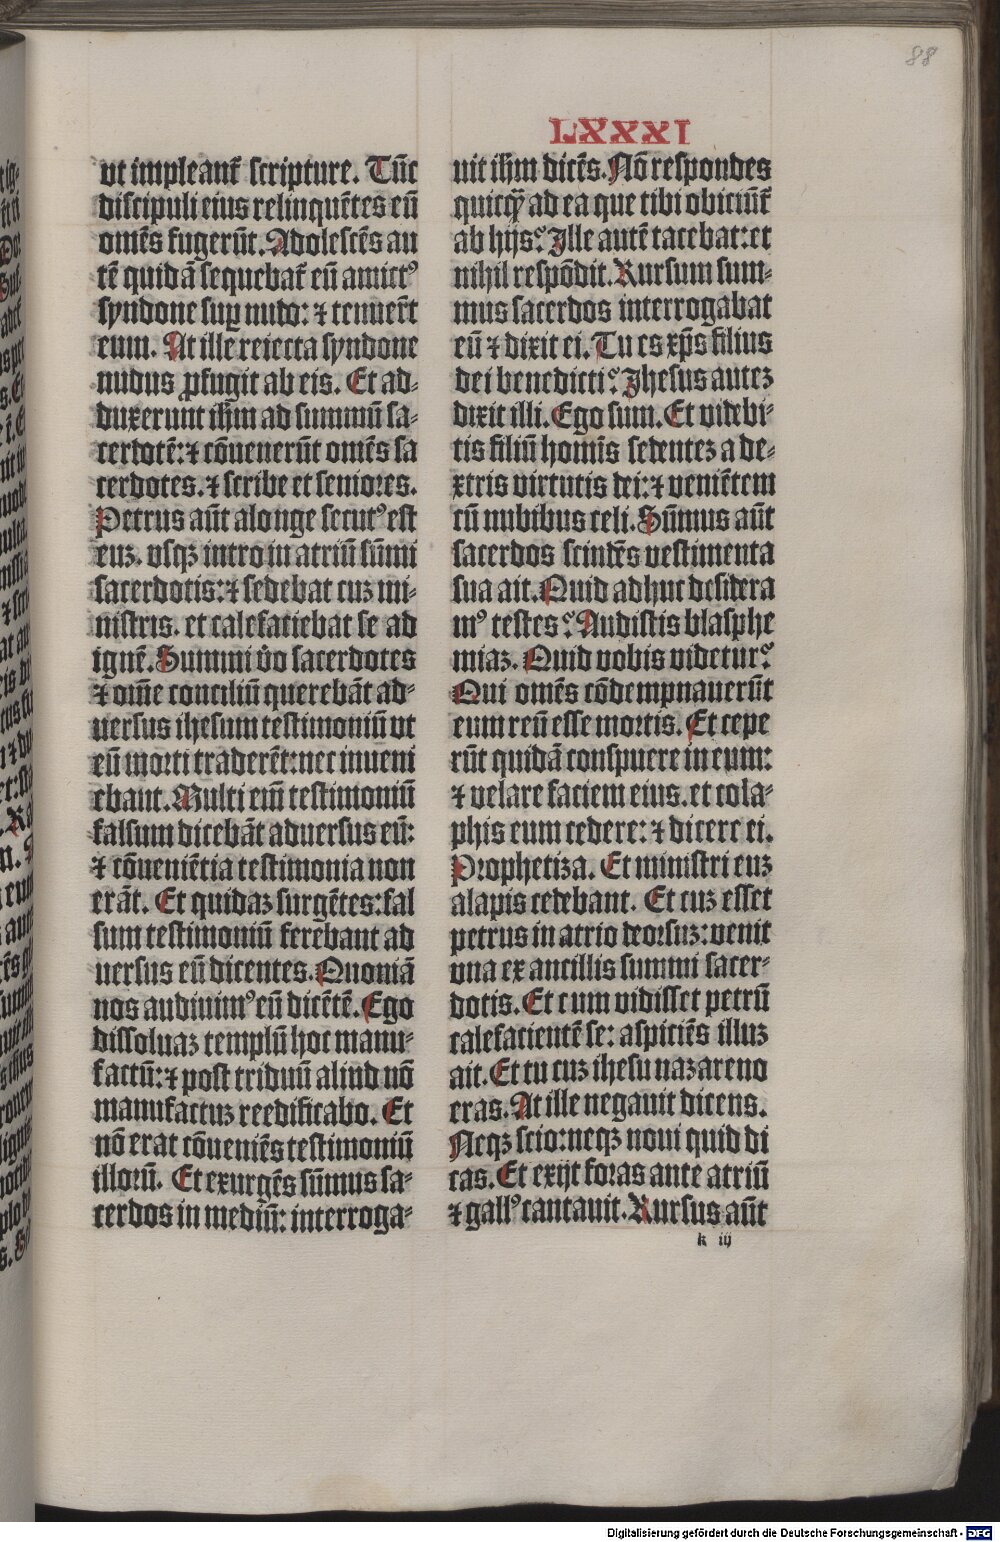 88
LXXXI
vt impleant᷑ scripture. Tūc
discipuli eius relinquētes eū
om̄es fugerūt. Adolescēs au
tē quidā sequebat᷑ eū amictꝰ
syndone suꝑ nudo: ⁊ tenuer̄t
eum. At ille reiecta syndone
nudus ꝓfugit ab eis. Et ad-
duxerunt ih̄m ad summū sa-
cerdotē: ⁊ cōuenerūt om̄es sa
cerdotes. ⁊ scribe et seniores.
Petrus aūt alonge secutꝰ est
euz. vsqꝫ intro in atriū sūmi
sacerdotis: ⁊ sedebat cuz mi-
nistris. et calefaciebat se ad
ignē. Summi v̄o sacerdotes
⁊ om̄e conciliū querebāt ad-
uersus ihesum testimoniū vt
eū morti traderēt: nec inueni
ebant. Multi em̄ testimoniū
falsum dicebāt aduersus eū:
⁊ cōueniētia testimonia non
erāt. Et quidaz surgētes: fal
sum testimoniū ferebant ad
uersus eū dicentes. Quoniā
nos audiuimꝰ eū dicētē. Ego
dissoluaz templū hoc manu-
factū: ⁊ post triduū aliud nō
manufactuz reedificabo. Et
nō erat cōueniēs testimoniū
illorū. Et exurgēs sūmus sa-
cerdos in mediū: interroga-
uit ih̄m dicēs. Nō respondes
quicqꝫ ad ea que tibi obiciūt᷑
ab hijs? Ille autē tacebat: et
nihil respōdit. Rursum sum-
mus sacerdos interrogabat
eū ⁊ dixit ei. Tu es xp̄s filius
dei benedicti? Jhesus autez
dixit illi. Ego sum. Et videbi-
tis filiū homīs sedentez a de-
xtris virtutis dei: ⁊ veniētem
cū nubibus celi. Sūmus aūt
sacerdos scindēs vestimenta
sua ait. Quid adhuc desidera
mꝰ testes? Audistis blasphe
miaz. Quid vobis videtur?
Qui om̄es cōdempnauerūt
eum reū esse mortis. Et cepe
rūt quidā conspuere in eum:
⁊ velare faciem eius. et cola-
phis eum cedere: ⁊ dicere ei.
Prophetiza. Et ministri euz
alapis cedebant. Et cuz esset
petrus in atrio deorsuz: venit
vna ex ancillis summi sacer-
dotis. Et cum vidisset petrū
calefacientē se: aspiciēs illuz
ait. Et tu cuz ihesu nazareno
eras. At ille negauit dicens.
Neqꝫ scio: neqꝫ noui quid di
cas. Et exijt foras ante atriū
⁊ gallꝰ cantauit. Rursus aūt
k iij
Digitalisierung gefördert durch die Deutsche Forschungsgemeinschaft - DFG